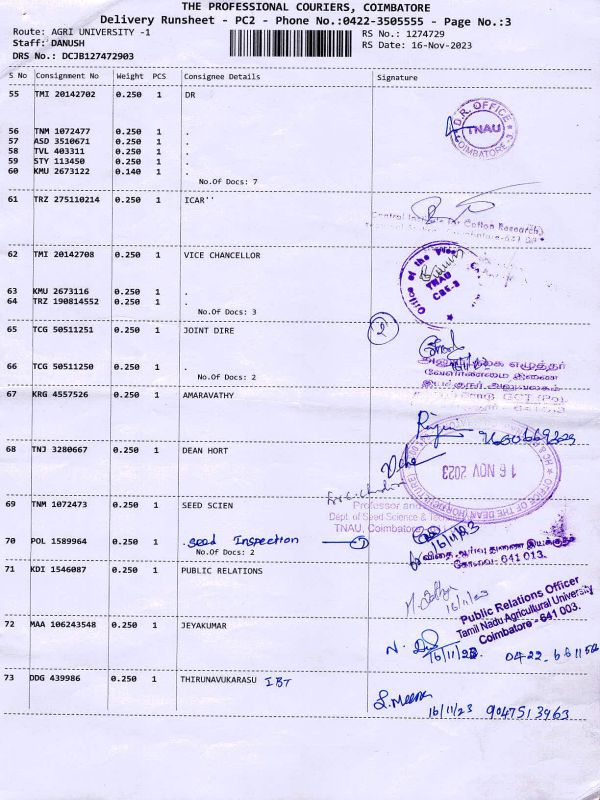 THE PROFESSIONAL COURIERS, COIMBATORE
Delivery Runsheet - PC2 - Phone No.:0422-3505555 - Page No.:3
Route: AGRI UNIVERSITY -1 RS No.: 1274729
Staff: DANUSH RS Date: 16-Nov-2023
DRS No.: DCJB127472903
S No Consignment No Weight PCS Consignee Details Signature
55 TMI 20142702 0.250 1 DR
D.R. OFFICE
TNAU
COIMBATORE-3
56 TNM 1072477 0.250 1 .
57 ASD 3510671 0.250 1 .
58 TVL 403311 0.250 1 .
59 STY 113450 0.250 1 .
60 KMU 2673122 0.140 1 .
No.Of Docs: 7
61 TRZ 275110214 0.250 1 ICAR''
Central Institute for Cotton Research
62 TMI 20142708 0.250 1 VICE CHANCELLOR
Office of the
TNAU
CBE-3
63 KMU 2673116 0.250 1 .
64 TRZ 190814552 0.250 1 .
No.Of Docs: 3
65 TCG 50511251 0.250 1 JOINT DIRE
2
66 TCG 50511250 0.250 1 .
No.Of Docs: 2
வேளாண்மை இணை
67 KRG 4557526 0.250 1 AMARAVATHY
68 TNJ 3280667 0.250 1 DEAN HORT
16 NOV 2023
OFFICE OF THE DEAN (HORTICULTURE)
69 TNM 1072473 0.250 1 SEED SCIEN
Professor and
Dept. of Seed Science &
TNAU, Coimbatore
70 POL 1589964 0.250 1 Seed Inspection
No.Of Docs: 2
16/11/23
விதை ஆய்வு துணை இயக்குநர்
கோவை- 641 013.
71 KDI 1546087 0.250 1 PUBLIC RELATIONS
16/11/23
Public Relations Officer
Tamil Nadu Agricultural University
Coimbatore - 641 003.
72 MAA 106243548 0.250 1 JEYAKUMAR
16/11/23
73 DDG 439986 0.250 1 THIRUNAVUKARASU IBT
16/11/23 9047513963